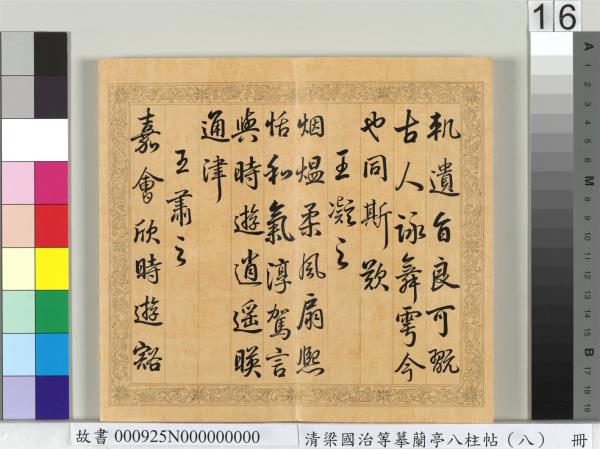 軌遺旨良可翫
古人詠舞雩今
也同斯歎
王凝之
烟熅柔風扇熙
恬和氣淳駕言
與時遊逍遥暎
通津
王肅之
嘉會欣時遊豁
16
A 1 2 3 4 5 6 M 8 9 10 11 12 13 14 15 B 17 18 19
故書 000925N000000000
清梁國治等摹蘭亭八柱帖（八） 冊